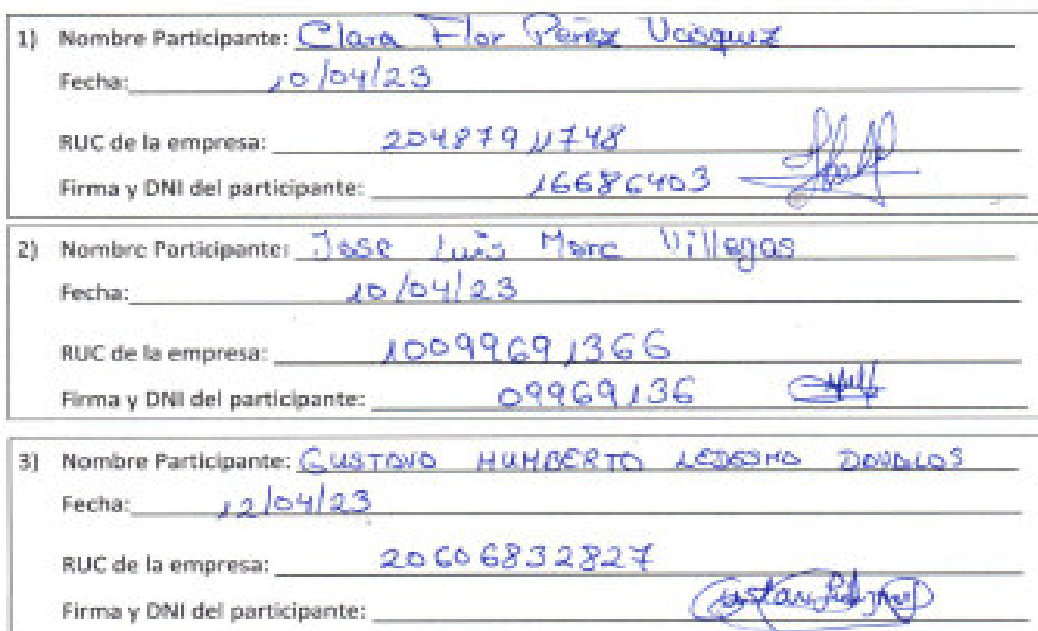 1) Nombre Participante: Clara Flor Pérez Vasquez
Fecha: 10/04/23
RUC de la empresa: 20487911748
Firma y DNI del participante: 16686403
2) Nombre Participante: Jose Luis More Villegas
Fecha: 10/04/23
RUC de la empresa: 10099691366
Firma y DNI del participante: 09969136
3) Nombre Participante: GUSTAVO HUMBERTO LEDESMA DAVALOS
Fecha: 12/04/23
RUC de la empresa: 20606832827
Firma y DNI del participante: